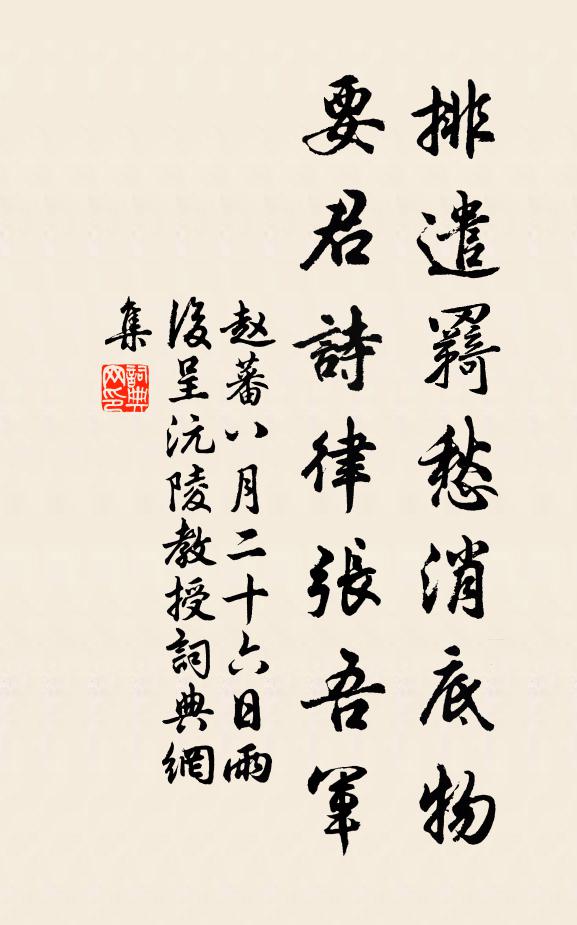 排遣羇愁消底物
要君詩律張吾軍
赵蕃八月二十六日雨
後呈沅陵教授詞典網
集
詞典
网印